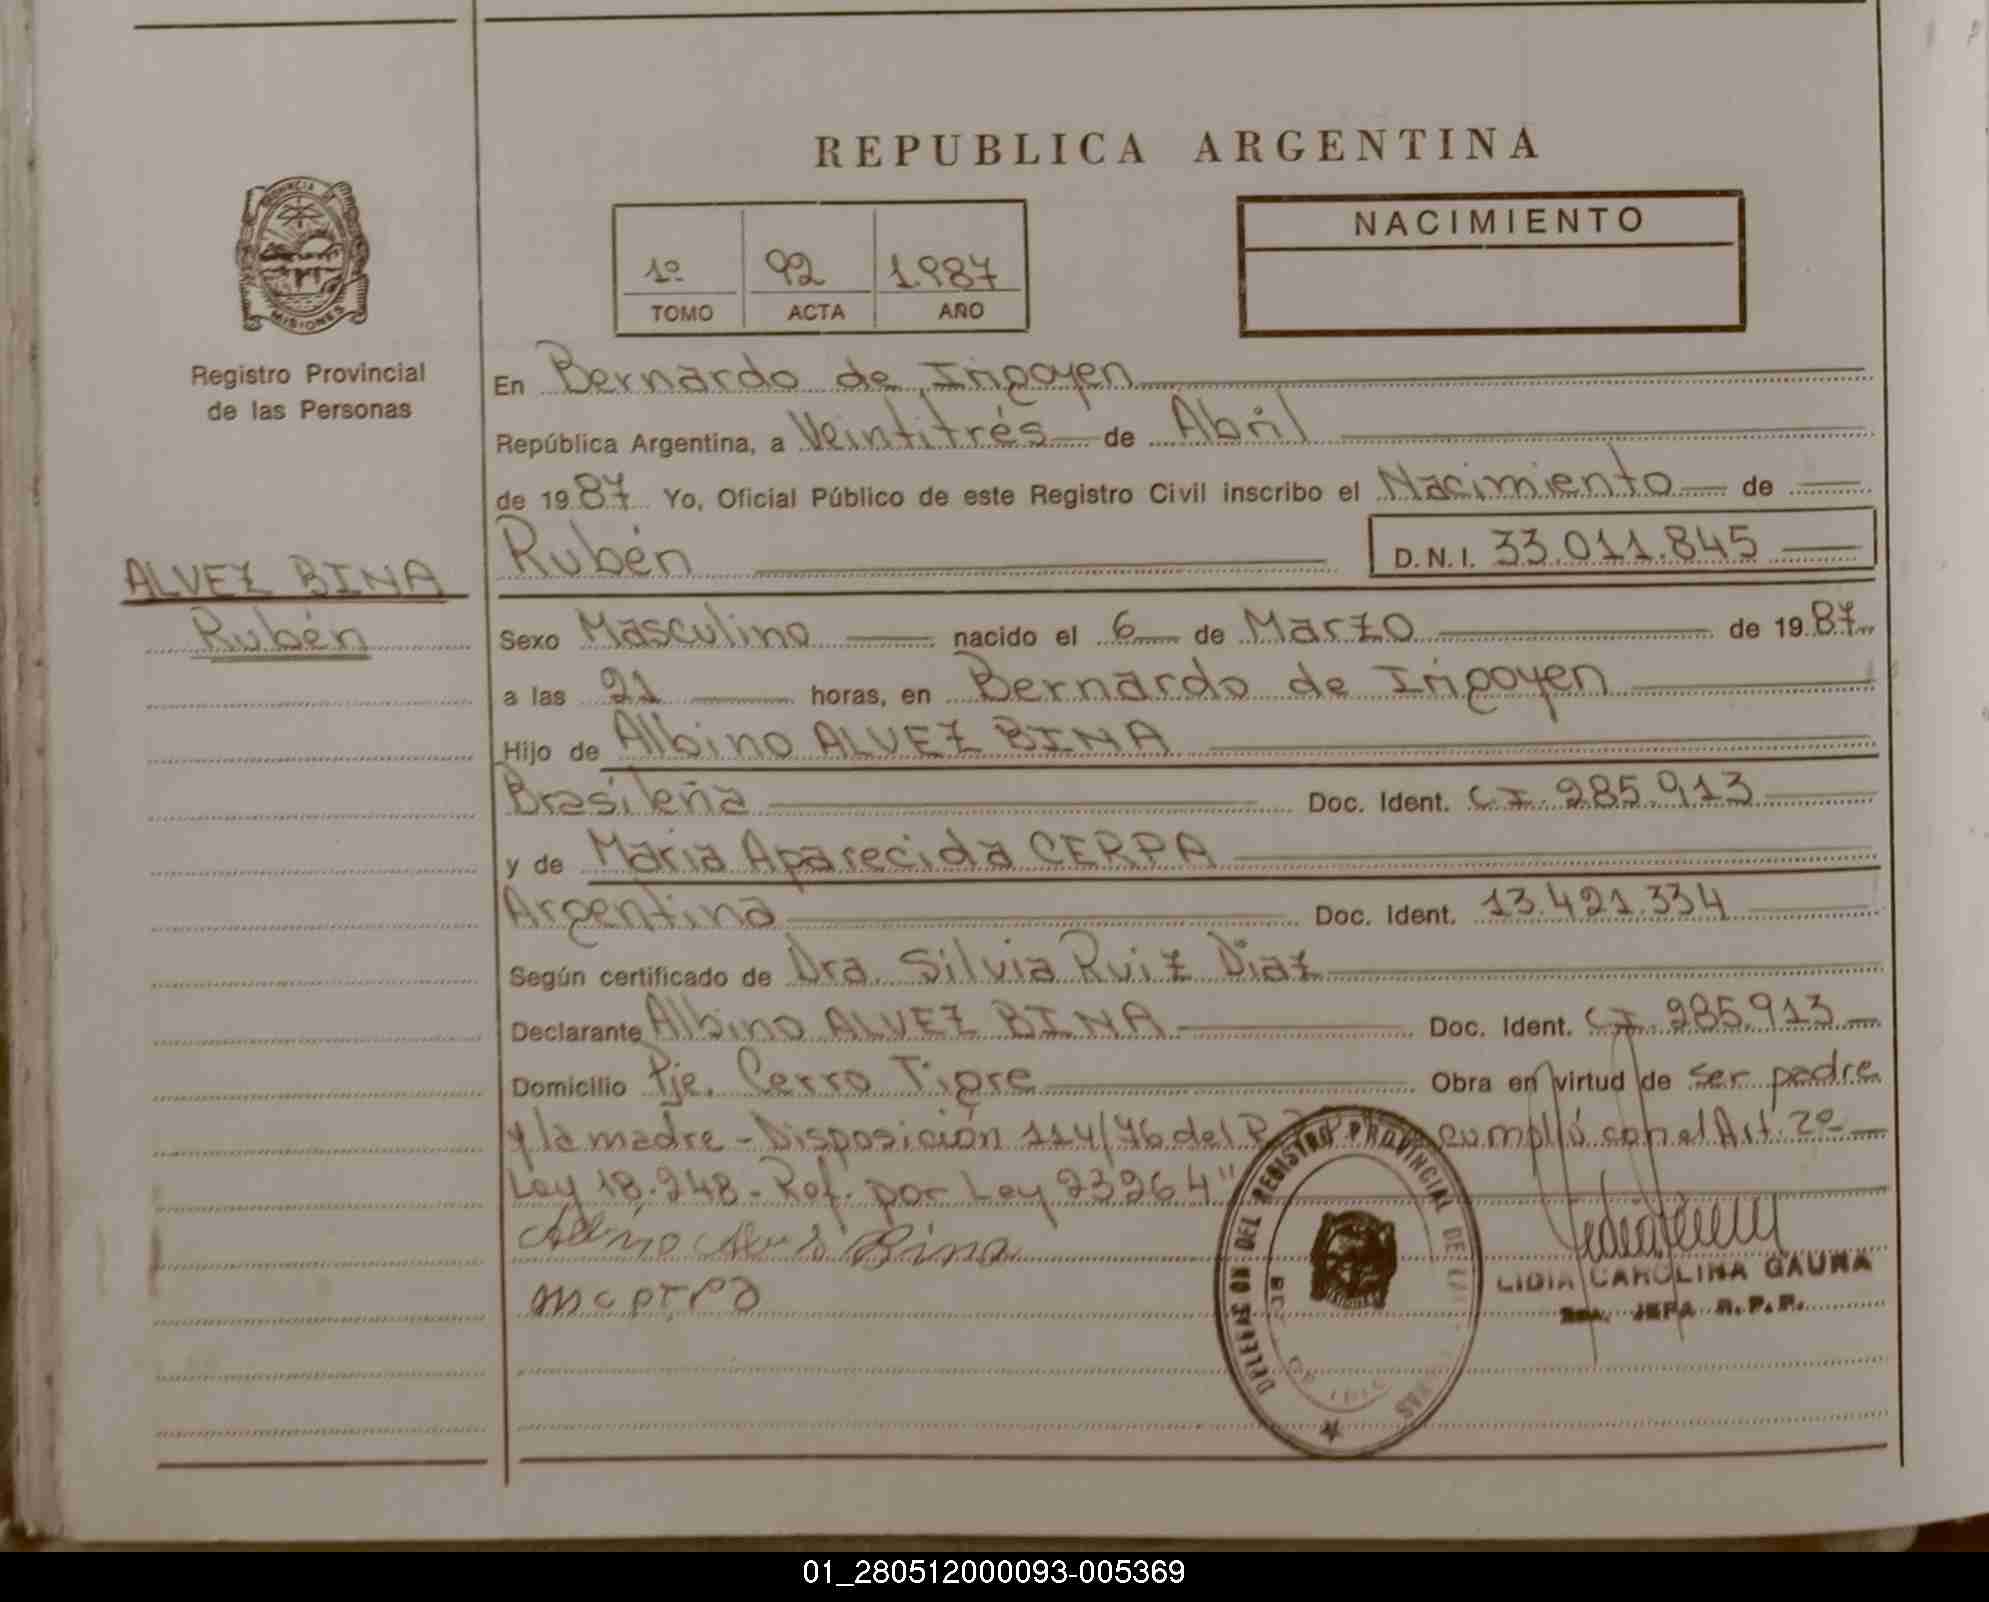 REPUBLICA ARGENTINA
PROVINCIA
MISIONES
Registro Provincial
de las Personas
1º 92 1.987
TOMO ACTA AÑO
NACIMIENTO
En Bernardo de Irigoyen
República Argentina, a Veintitrés de Abril
de 1987 Yo, Oficial Público de este Registro Civil inscribo el Nacimiento de
Rubén D.N.I. 33.011.845
ALVEZ BINA
Rubén
Sexo Masculino nacido el 6 de Marzo de 1987
a las 21 horas, en Bernardo de Irigoyen
Hijo de Albino ALVEZ BINA
Brasileña Doc. Ident. CI 285.913
y de Maria Aparecida CERPA
Argentina Doc. Ident. 13.421.334
Según certificado de Dra. Silvia Ruiz Diaz
Declarante Albino ALVEZ BINA Doc. Ident. CI 285.913
Domicilio Pje. Cerro Tigre Obra en virtud de ser padre
y la madre - Disposición 114/76 del cumplió con el Art. 2º
Ley 18.248 - Ref. por Ley 23264"
Albino Bina
DELEGACION DEL REGISTRO PROVINCIAL DE LAS
LIDIA CAROLINA GAUNA
JEFA R.P.P.
01_280512000093-005369